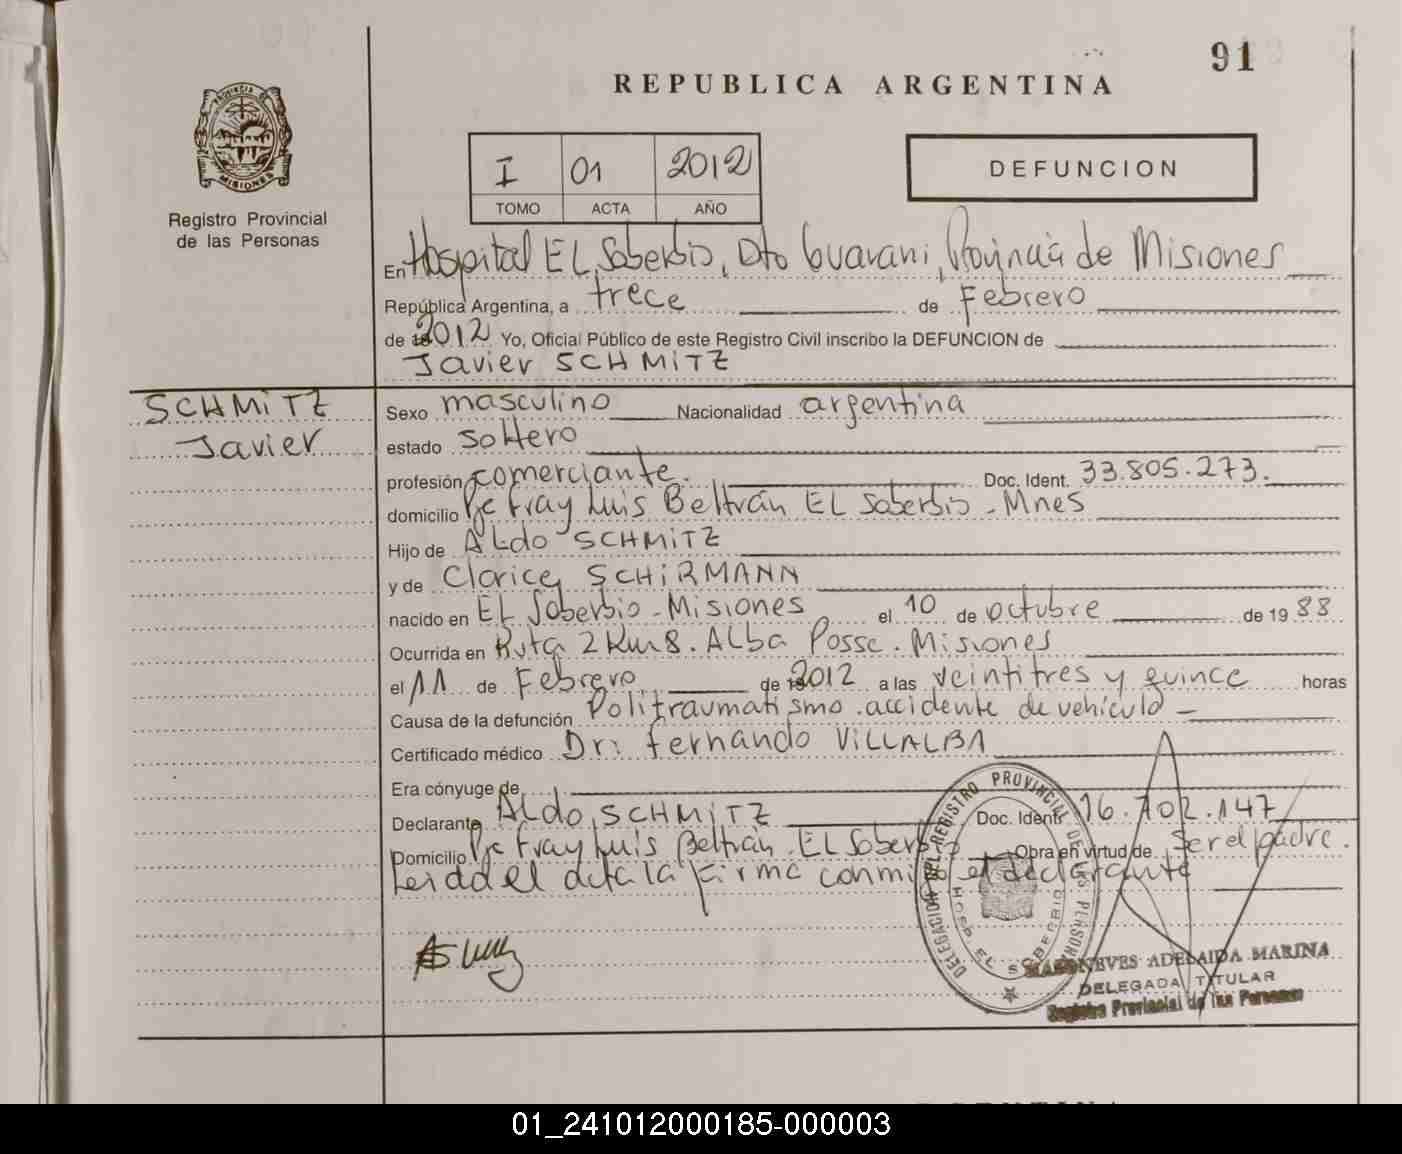 91
REPUBLICA ARGENTINA
PROVINCIA DE
MISIONES
Registro Provincial
de las Personas
I 01 2012
TOMO ACTA AÑO
DEFUNCION
En Hospital EL Soberbio, Dto Guarani, Provincia de Misiones
República Argentina, a trece de Febrero
de 2012 Yo, Oficial Público de este Registro Civil inscribo la DEFUNCION de
Javier SCHMITZ
SCHMITZ
Javier
Sexo masculino Nacionalidad argentina
estado soltero
profesión comerciante. Doc. Ident. 33.805.273.
domicilio Fray Luis Beltrán EL Soberbio - Mnes
Hijo de ALdo SCHMITZ
y de Clarice SCHIRMANN
nacido en EL Soberbio - Misiones el 10 de octubre de 1988
Ocurrida en Ruta 2 Km 8. ALba Posse. Misiones
el 11 de Febrero de 2012 a las veintitres y quince horas
Causa de la defunción Politraumatismo. accidente de vehículo -
Certificado médico Dr: Fernando VILLALBA
Era cónyuge de
Declarante ALdo SCHMITZ Doc. Ident. 16.702.147
Domicilio Fray Luis Beltrán. EL Soberbio Obra en virtud de Ser el padre.
Leida el acta la firma conmigo el declarante
DELEGACION DEL REGISTRO PROVINCIAL DE LAS PERSONAS
HOSP. EL SOBERBIO
NEVES ADELAIDA MARINA
DELEGADA TITULAR
Registro Provincial de las Personas
01_241012000185-000003